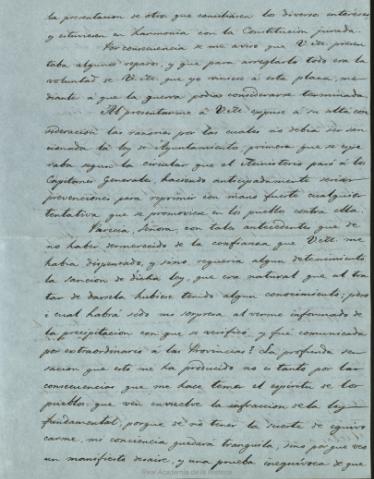 la presentacion de otro que conciliasen los diversos intereses
y estuviesen en harmonia con la Constitucion jurada.
Por consecuencia se me aviso que V.M. presen
taba algunos reparos, y que para arreglarlo todo era la
voluntad de V.M. que yo viniese á esta plaza, me
diante á que la guerra podia considerarse terminada.
Al presentarme á V.M. espuse á su alta con
sideracion las razones por las cuales no debia ser san
cionada la ley de Ayuntamientos, primera que se espe
raba segun la circular que el Ministerio pasó á los
Capitanes Generales, haciendo anticipadamente serias
prevenciones para reprimir con mano fuerte cualquier
tentativa que se promoviese en los pueblos contra ella.
Parecia, Señora, con tales antecedentes que de
no haber desmerecido de la confianza que V.M. me
habia dispensado, y sino requeria algun detenimiento
la sancion de dicha ley, que era natural que al tra
tar de darsela hubiese tenido algun conocimiento; pero
¡cual habrá sido mi sorpresa al verme informado de
la precipitacion con que se verificó, y fué comunicada
por extraordinario á las Provincias! La profunda sen
sacion que esto me ha producido no es tanto por las
consecuencias que me hace temer el espiritu de los
pueblos, que ven envuelve la infraccion de la ley
fundamental, porque se vió tener la suerte de equivo
carme, mi conciencia quedará tranquila, sino porque veo
un manifiesto desaire, y una prueba inequivoca de que
Real Academia de la Historia